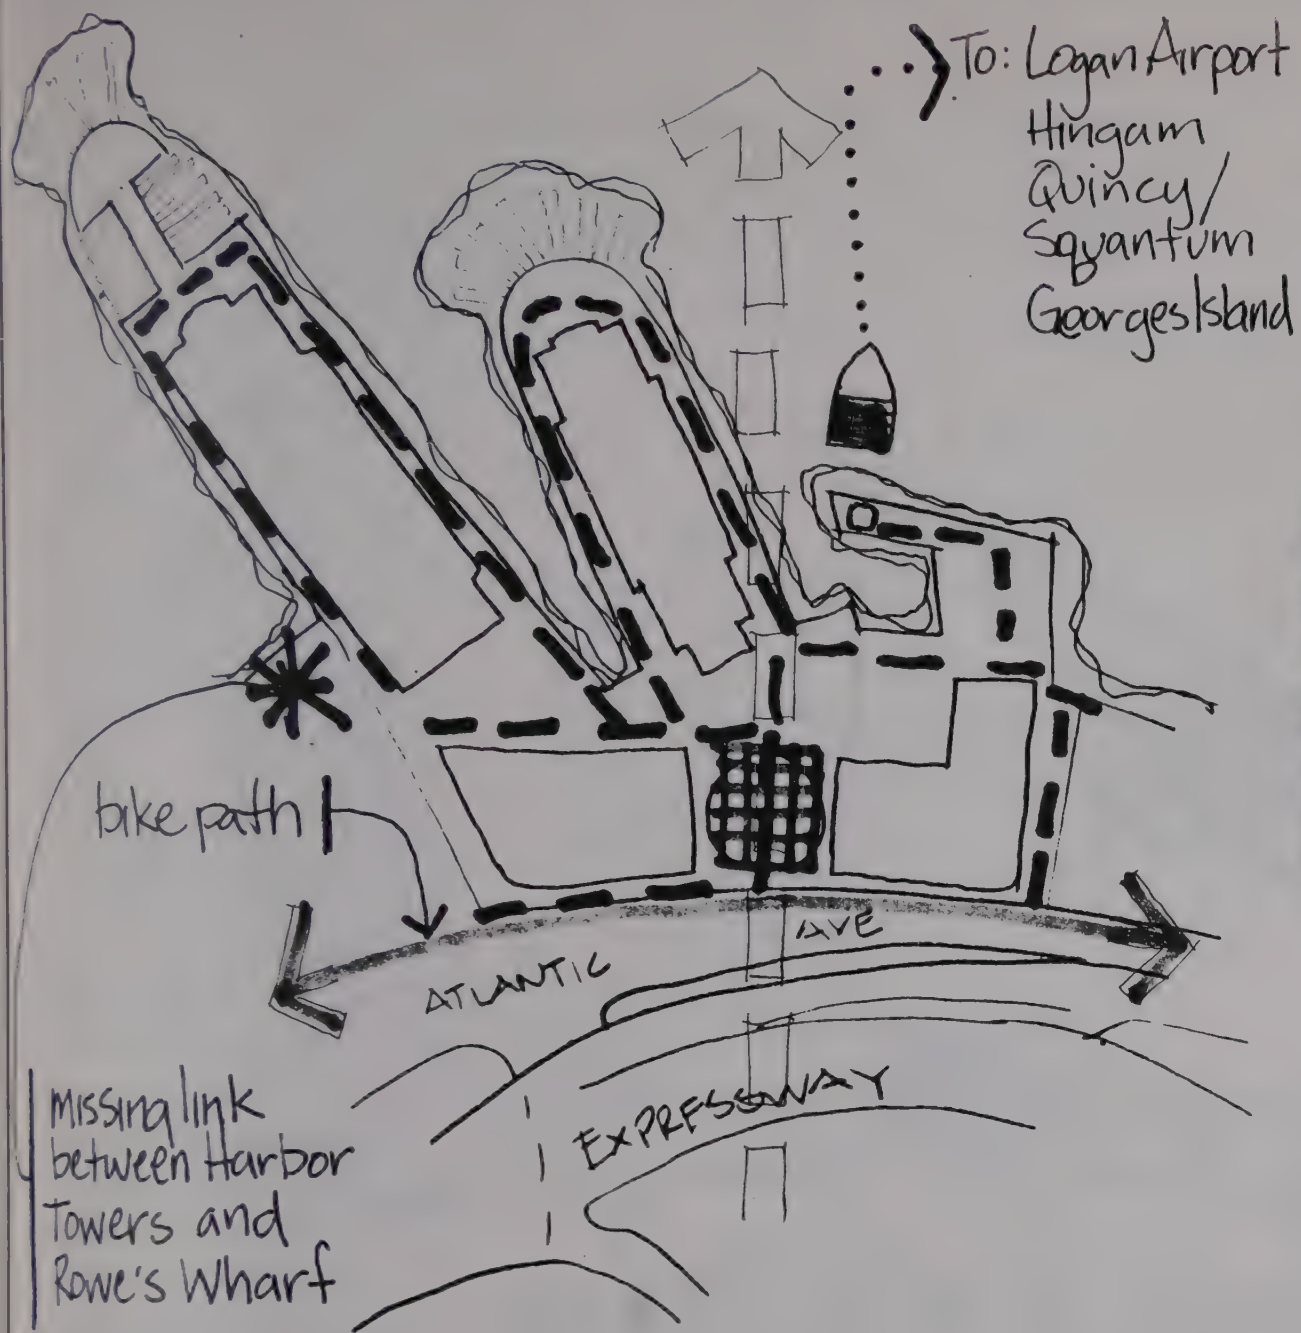 To: Logan Airport
Hingam
Quincy/
Squantum
Georges Island
bike path
ATLANTIC AVE
EXPRESSWAY
Missing link
between Harbor
Towers and
Rowe's Wharf